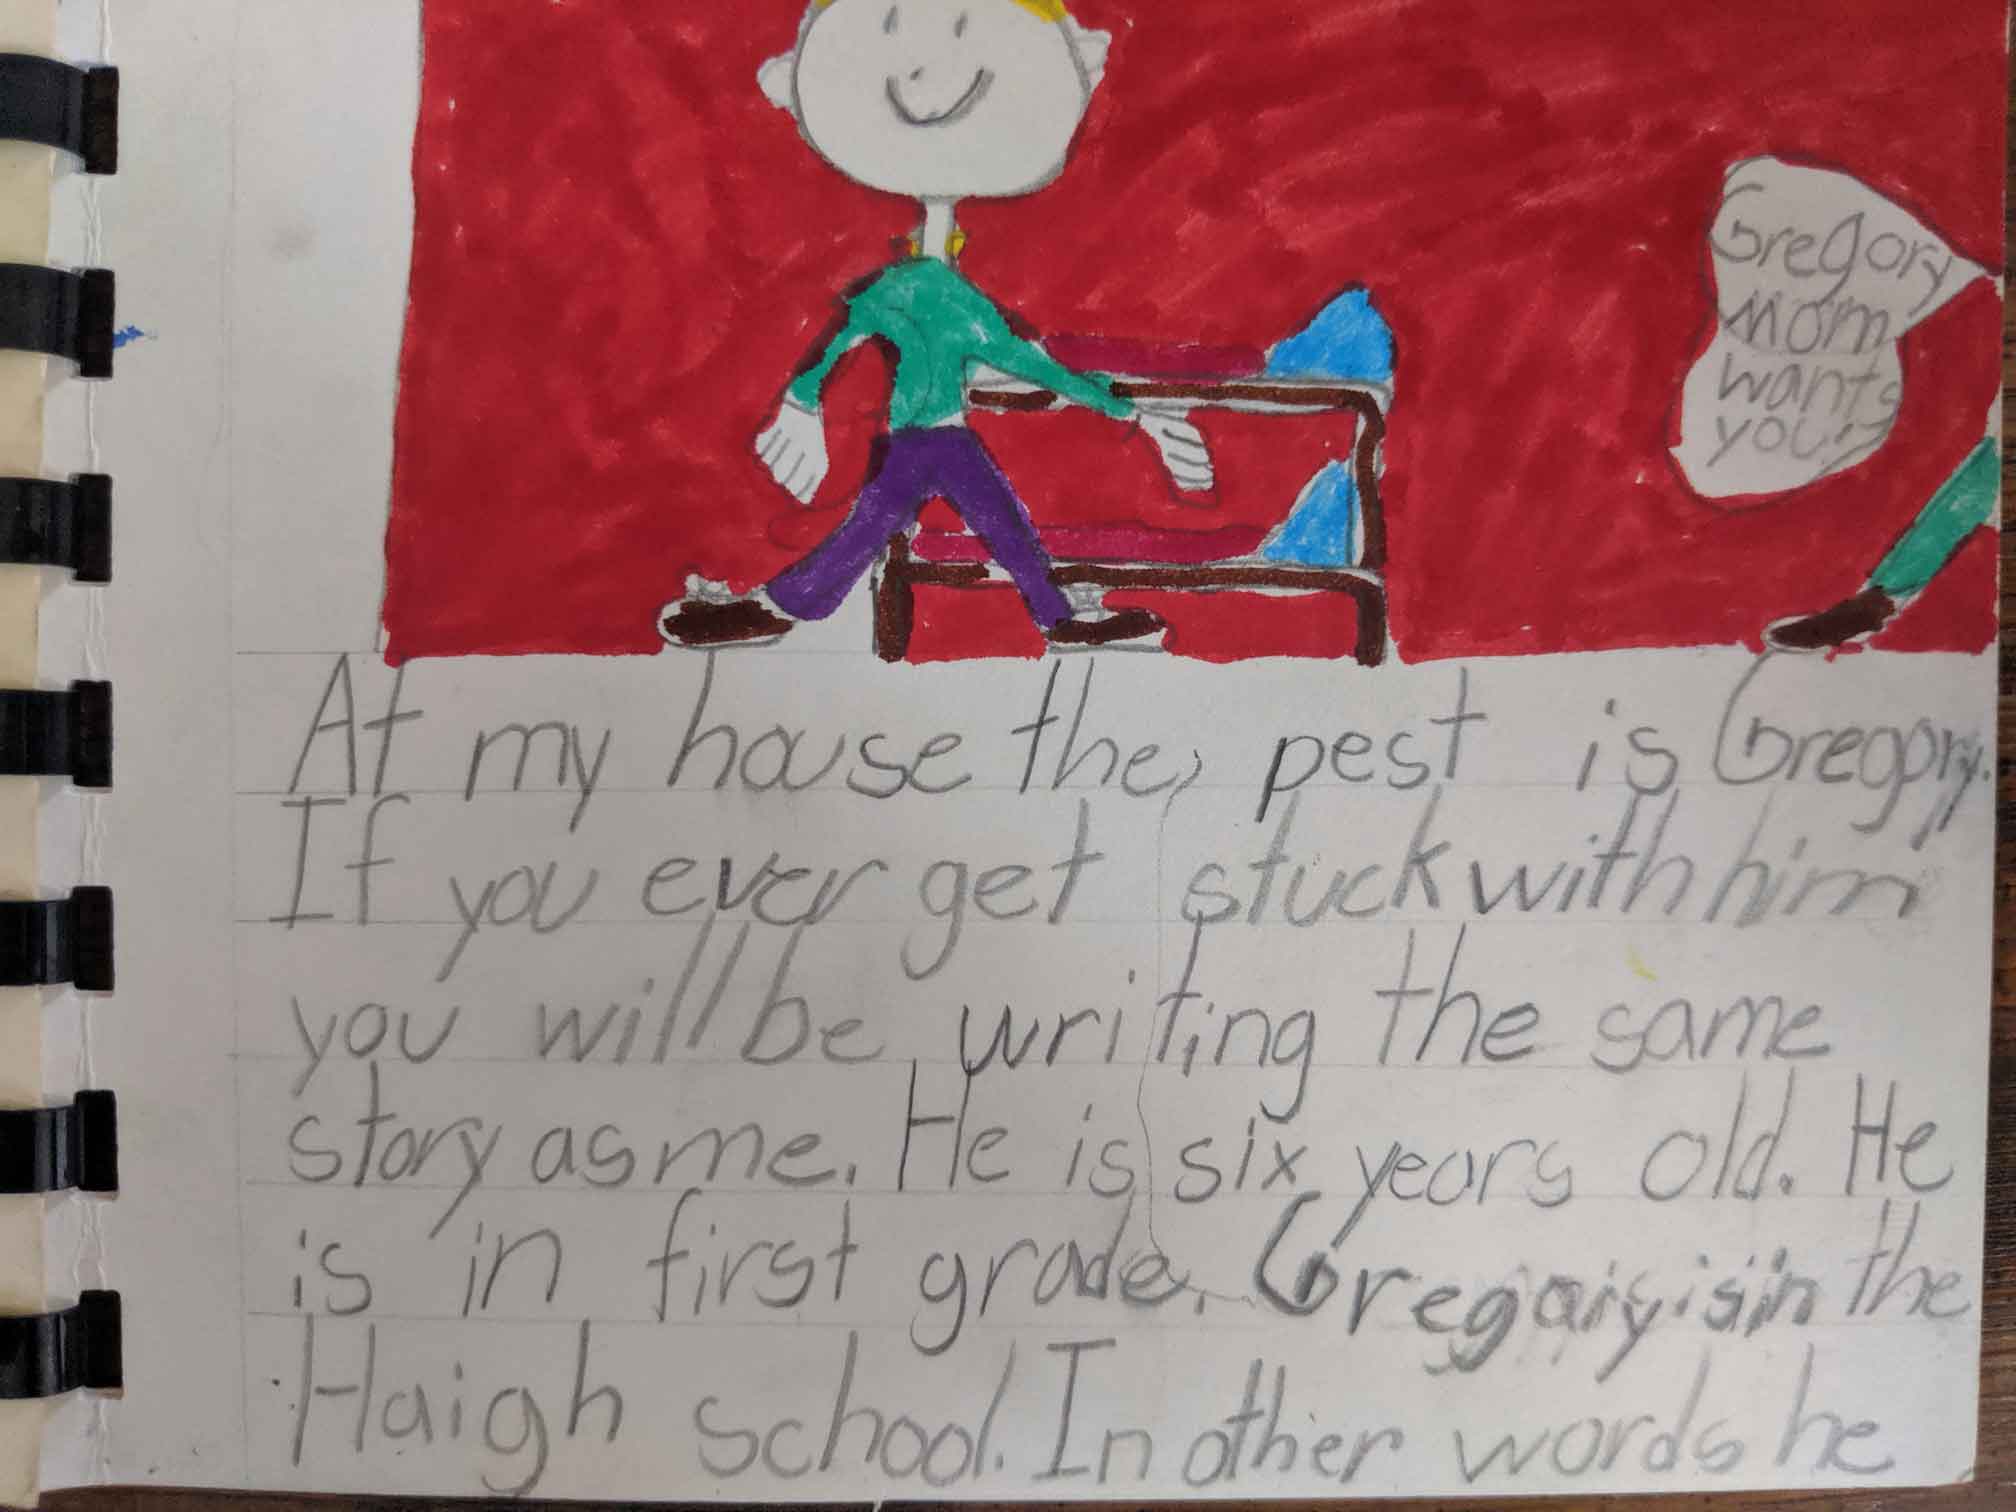 Gregory
Mom
wants
you!
At my house the pest is Gregory.
If you ever get stuck with him
you will be writing the same
story as me. He is six years old. He
is in first grade. Gregory is in the
Haigh school. In other words he